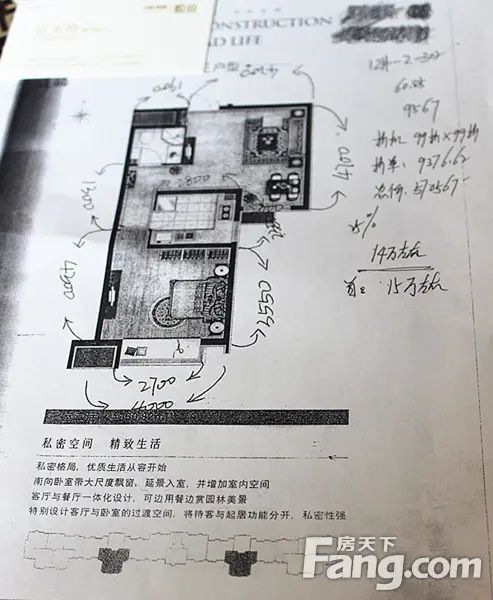 CONSTRUCTION
AD LIFE
户型
1900
4700
12#-2-302
60.88
9567
折扣: 99折×99折
折单: 9376.62
总价: 570567
25%
14万左右
首: 15万左右
1800
4700
3300
4300
2550
2700
4000
私密空间 精致生活
私密格局，优质生活从容开始
南向卧室带大尺度飘窗，延景入室，并增加室内空间
客厅与餐厅一体化设计，可边用餐边赏园林美景
特别设计客厅与卧室的过渡空间，将待客与起居功能分开，私密性强
房天下
Fang.com